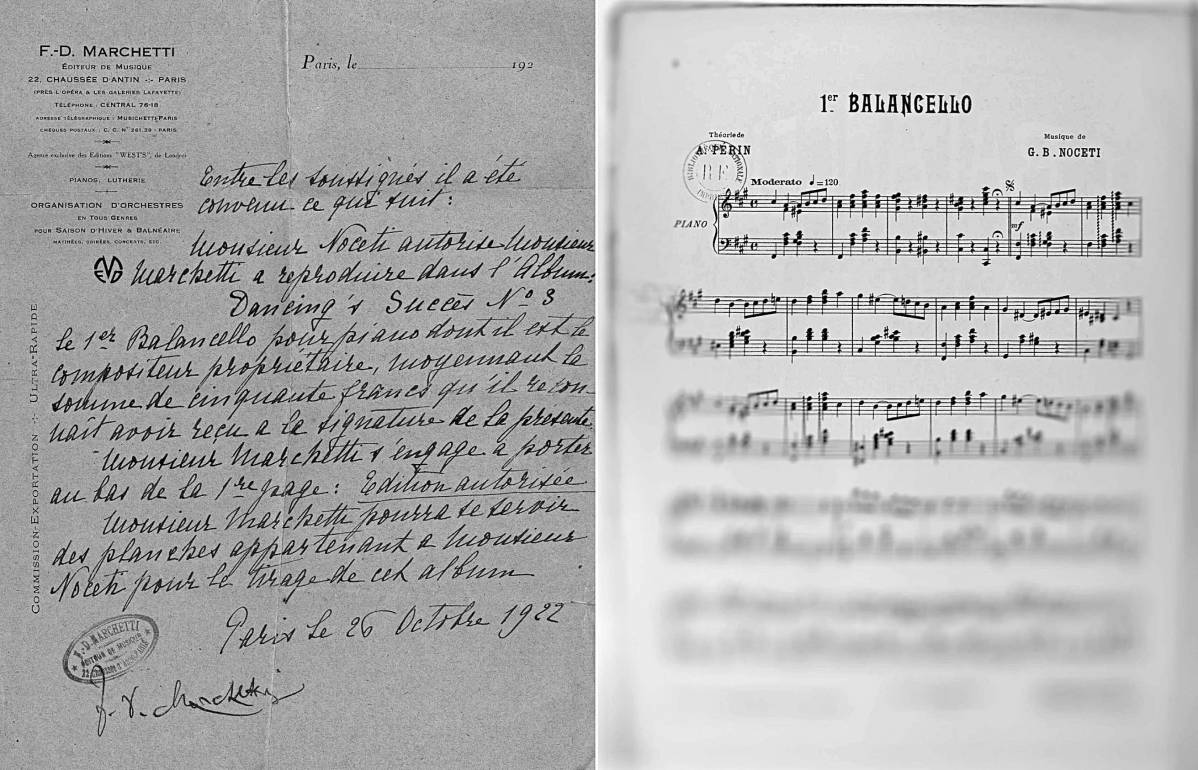 F.-D. MARCHETTI
ÉDITEUR DE MUSIQUE
22, CHAUSSÉE D'ANTIN -:- PARIS
(PRÈS L'OPÉRA & LES GALERIES LAFAYETTE)
TÉLÉPHONE : CENTRAL 76-18
ADRESSE TÉLÉGRAPHIQUE : MUSICHETTI-PARIS
CHÈQUES POSTAUX : C. C. N° 261.39 - PARIS
Agence exclusive des Editions "WEST'S", de Londres
PIANOS, LUTHERIE
ORGANISATION D'ORCHESTRES
EN TOUS GENRES
POUR SAISON D'HIVER & BALNÉAIRE
MATINÉES, SOIRÉES, CONCERTS, ETC.
COMMISSION-EXPORTATION -:- ULTRA-RAPIDE
Paris, le 192
Entre les soussignés il a été
convenu ce qui suit :
Monsieur Noceti autorise Monsieur
Marchetti a reproduire dans l'Album :
Dancing's Succès N° 3
le 1er Balancello pour piano dont il est le
compositeur propriétaire, moyennant la
somme de cinquante francs qu'il recon-
nait avoir reçu a la signature de la presente.
Monsieur Marchetti s'engage a porter
au bas de la 1re page : Edition autorisée
Monsieur Marchetti pourra se servir
des planches appartenant a Monsieur
Noceti pour le tirage de cet album
Paris le 26 Octobre 1922
F.-D. MARCHETTI
EDITEUR DE MUSIQUE
F. D. Marchetti
1er BALANCELLO
Théorie de
A. PERIN
Musique de
G. B. NOCETI
Moderato ♩=120
PIANO
mf